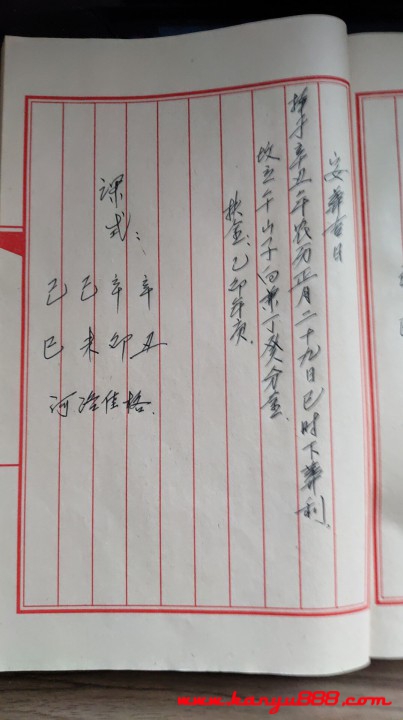 安葬吉日
择于辛丑年农历正月二十九日巳时下葬利
坟立午山子向兼丁癸分金
扶金：乙卯年庚.
课式：
己己辛辛
巳未卯丑
河洛佳格.
www.kanyu888.com